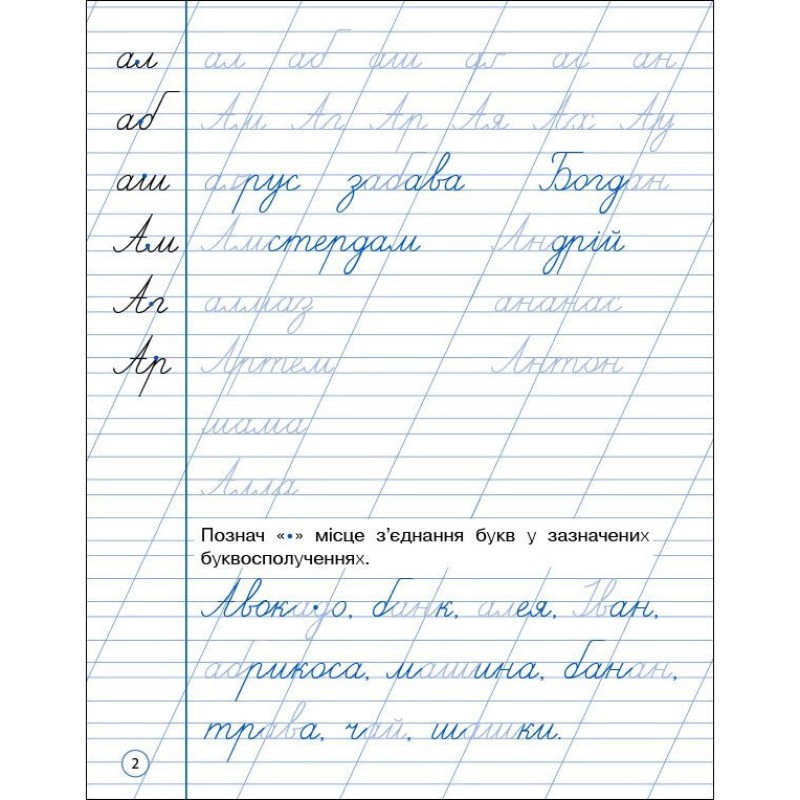 ал ал аб аш аг ас ан
аб Ам Аг Ар Ая Ах Ау
аш аркус забава Богдан
Ам Амстердам Андрій
Аг алмаз ананас
Ар Артем Антон
мама
Алла
Познач «•» місце з’єднання букв у зазначених
буквосполученнях.
Авокадо, банк, алея, Іван,
абрикоса, машина, банан,
трава, чай, шашки.
2